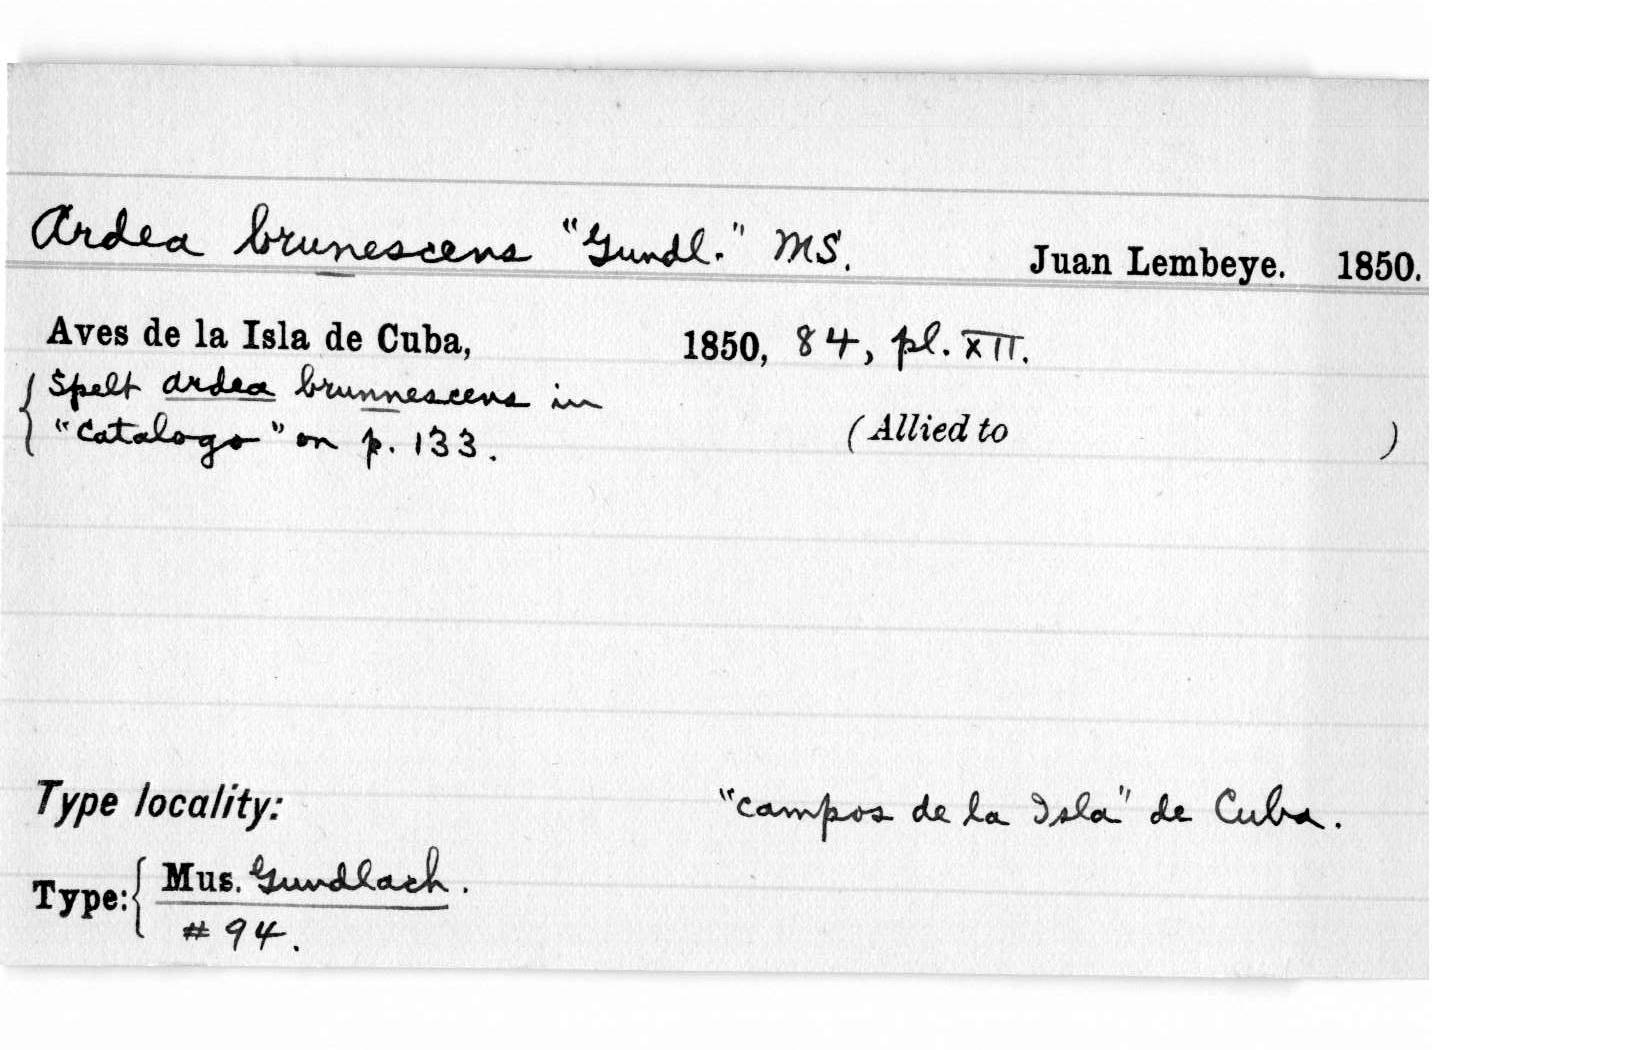 Ardea brunescens "Gundl." MS. Juan Lembeye. 1850.
Aves de la Isla de Cuba, 1850, 84, pl. XII.
Spelt ardea brunnescens in
"Catalogo" on p. 133.
(Allied to )
Type locality: "campos de la Isla" de Cuba.
Type: Mus. Gundlach.
# 94.